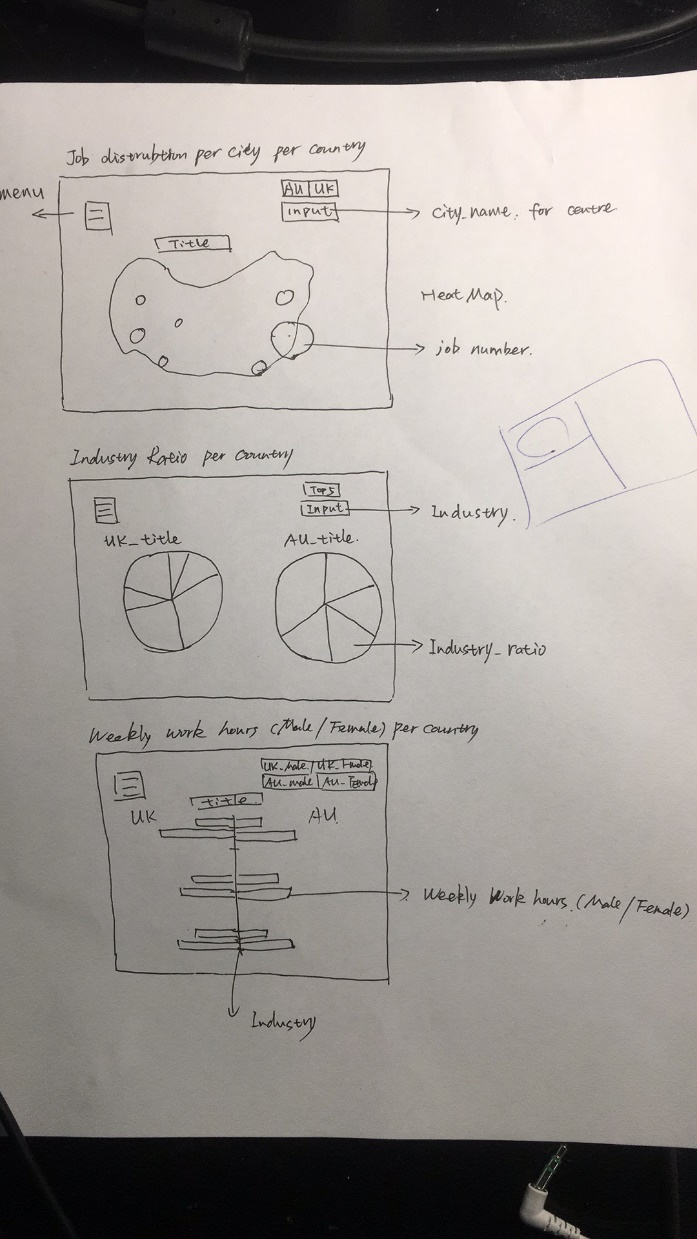 Job distrubtion per city per country
menu
AU UK
input
City_name. for centre
Title
Heat Map.
job number.
Industry Ratio per country
Top5
Input
Industry.
UK_title
AU_title.
Industry_ratio
Weekly work hours (Male/Female) per country
UK_male UK_Female
AU_male AU_Female
title
UK
AU
Weekly Work hours. (Male/Female)
Industry